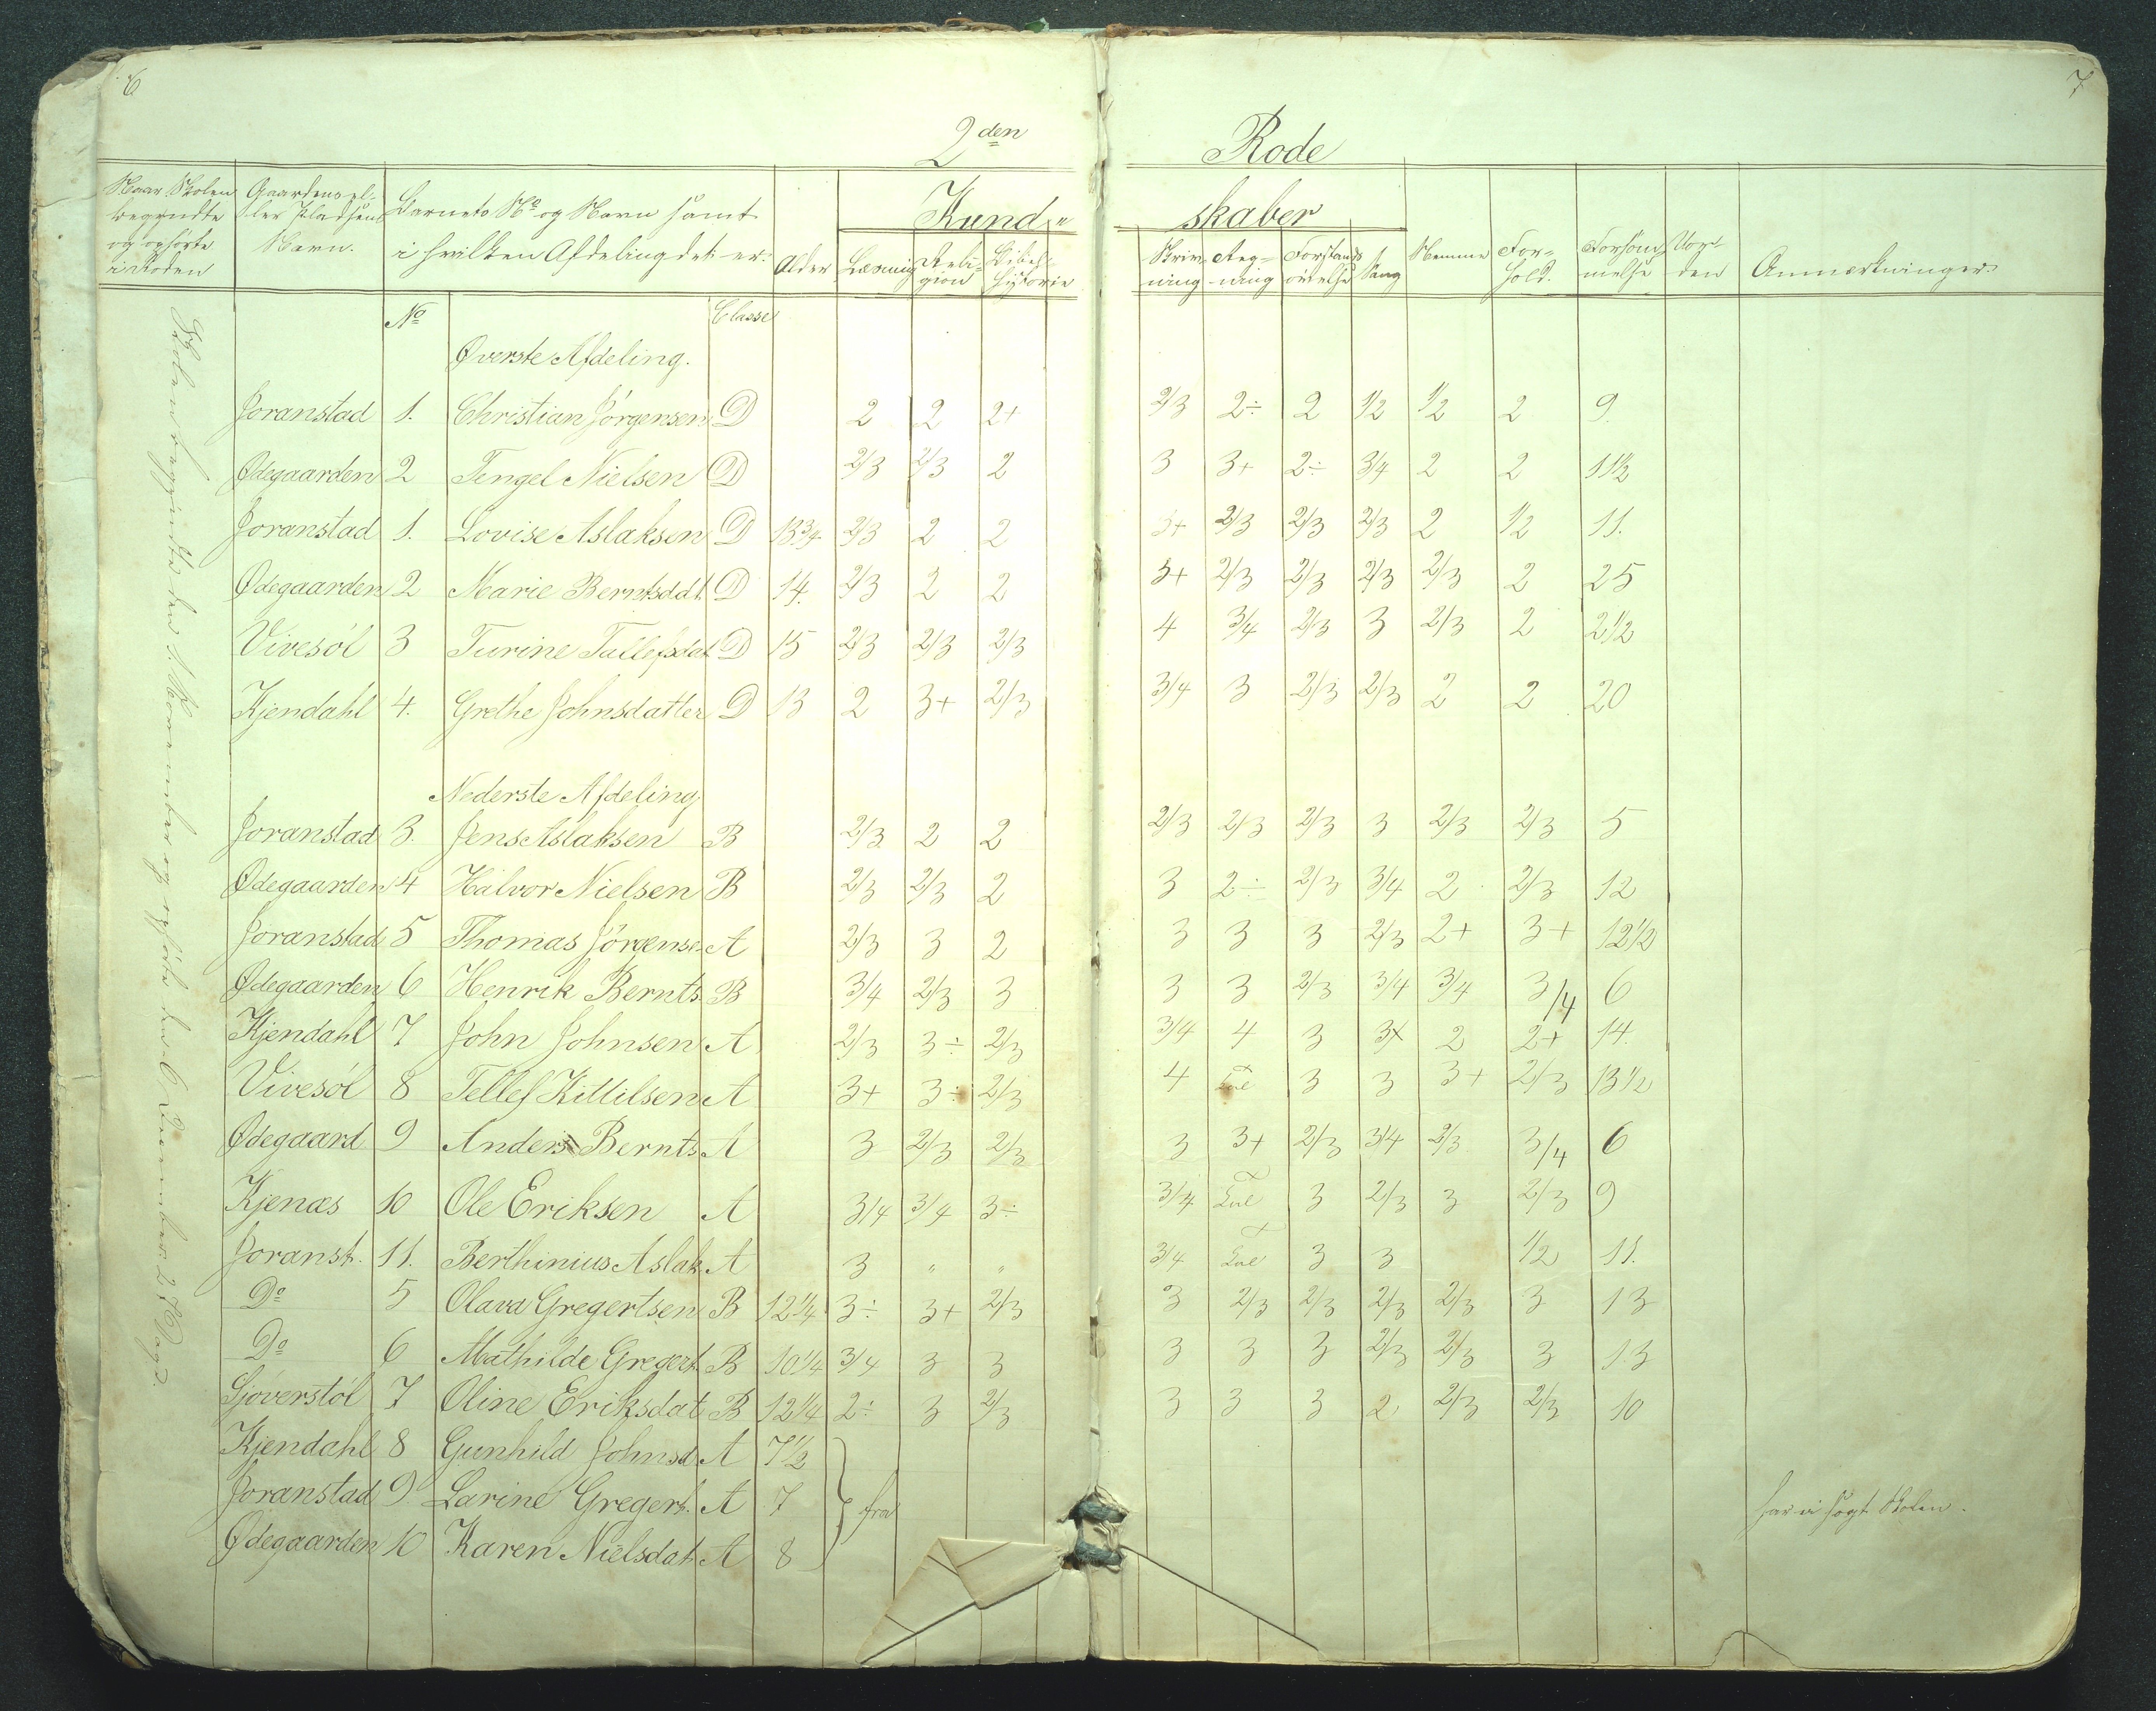 6
7
2den Rode
Naar Skolen begyndte og ophørte i Roden
Gaardens eller Pladsens Navn.
Barnets No og Navn samt i hvilken Afdeling det er.
Alder
Kund- skaber
Læsning
Religion
Bibelhistorie
Skrivning
Regning
Forstandsøvelse
Sang
Nemme
Forhold.
Forsømmelse
Anmærkninger
No Classe
Øverste Afdeling.
Joranstad 1. Christian Jørgensen D 2 2 2+ 2/3 2÷ 2 1/2 1/2 2 9
Ødegaarden 2 Tengel Nielsen D 2/3 2/3 2 3 3+ 2÷ 3/4 2 2 11 1/2
Joranstad 1. Lovise Aslaksen D 13 3/4 2/3 2 2 3+ 2/3 2/3 2/3 2 1/2 11.
Ødegaarden 2 Marie Berntsddt. D 14. 2/3 2 2 3+ 2/3 2/3 2/3 2/3 2 25
Vivesöl 3 Turine Tallefsdat D 15 2/3 2/3 2/3 4 3/4 2/3 3 2/3 2 2 1/2
Kjendahl 4. Grethe Johnsdatter D 13 2 3+ 2/3 3/4 3 2/3 2/3 2 2 20
Nederste Afdeling
Joranstad 3. Jens Aslaksen B 2/3 2 2 2/3 2/3 2/3 3 2/3 2/3 5
Ødegaarden 4 Halvor Nielsen B 2/3 2/3 2 3 2÷ 2/3 3/4 2 2/3 12
Joranstad 5 Thomas Jørgense A 2/3 3 2 3 3 3 2/3 2+ 3+ 12 1/2
Ødegaarden 6 Henrik Bernts B 3/4 2/3 3 3 3 2/3 3/4 3/4 3/4 6
Kjendahl 7 John Johnsen A 2/3 3÷ 2/3 3/4 4 3 3+ 2 2+ 14.
Vivesöl 8 Tellef Kittilsen A 3+ 3÷ 2/3 4 3 3 3+ 2/3 13 1/2
Ødegaard 9 Anders Bernts A 3 2/3 2/3 3 3+ 2/3 3/4 2/3 3/4 6
Kjenas 10 Ole Eriksen A 3/4 3/4 3÷ 3/4 3 2/3 3 2/3 9
Joranst. 11. Berthinius Aslak A 3 " " 3/4 3 3 1/2 11.
Do 5 Olava Gregertsen B 12 1/4 3÷ 3+ 2/3 3 2/3 2/3 2/3 2/3 3 13
Do 6 Mathilde Gregert. B 10 1/4 3/4 3 3 3 3 3 2/3 2/3 3 13
Sjöverstöl 7 Oline Eriksdat B 12 1/4 2÷ 3 2/3 3 3 3 2 2/3 2/3 10
Kjendahl 8 Gunhild Johnsd A 7 1/2
Joranstad 9 Larine Gregert. A 7 fra har ei søgt Skolen.
Ødegaarden 10 Karen Nielsdat. A 8
Skolen begyndte den 1. November og ophörte den 6 December 27 Dage.